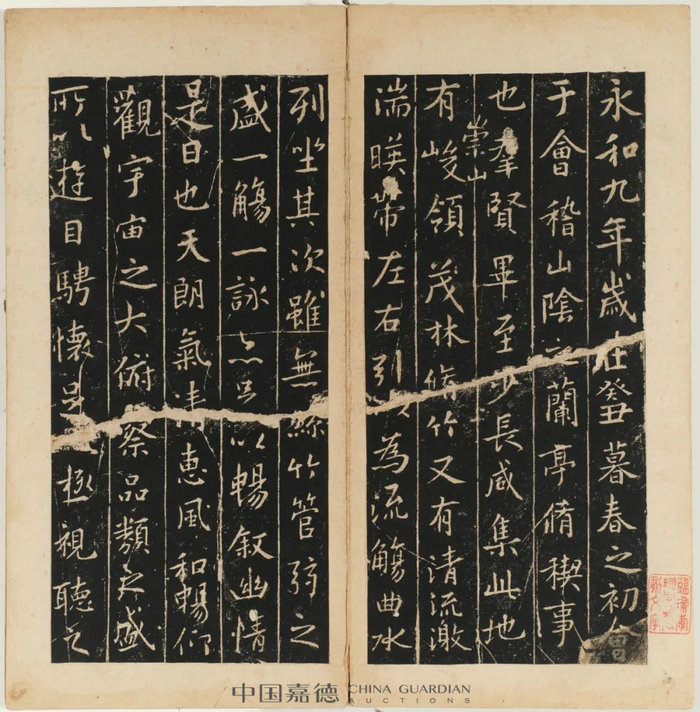 永和九年歲在癸丑暮春之初
于會稽山陰之蘭亭脩稧事
也羣賢畢至少長咸集此地
有崇山峻領茂林脩竹又有清流激
湍暎帶左右引以為流觴曲水
列坐其次雖無絲竹管弦之
盛一觴一詠亦足以暢敘幽情
是日也天朗氣清惠風和暢仰
觀宇宙之大俯察品類之盛
所以遊目騁懷足以極視聽之
中国嘉德 CHINA GUARDIAN
AUCTIONS